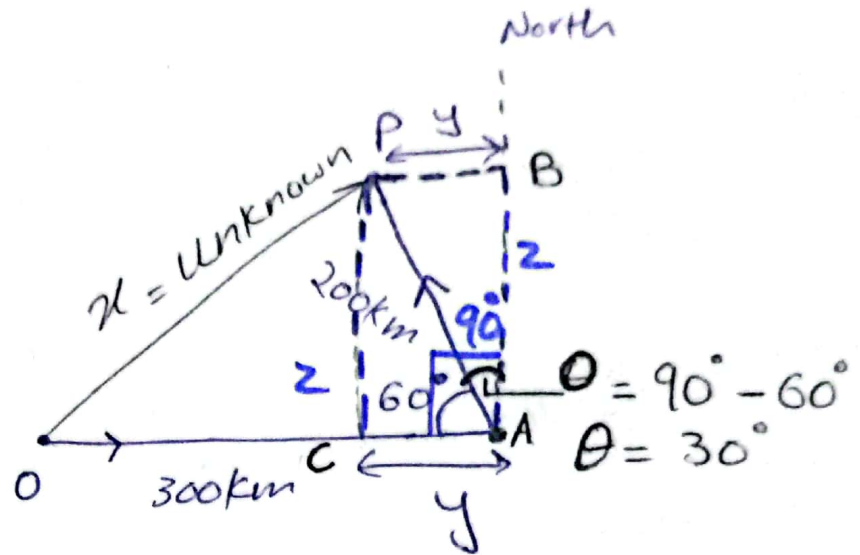 North
P
y
B
x = Unknown
200km
z
90°
z
60°
θ = 90° - 60°
A
θ = 30°
C
O
300km
y